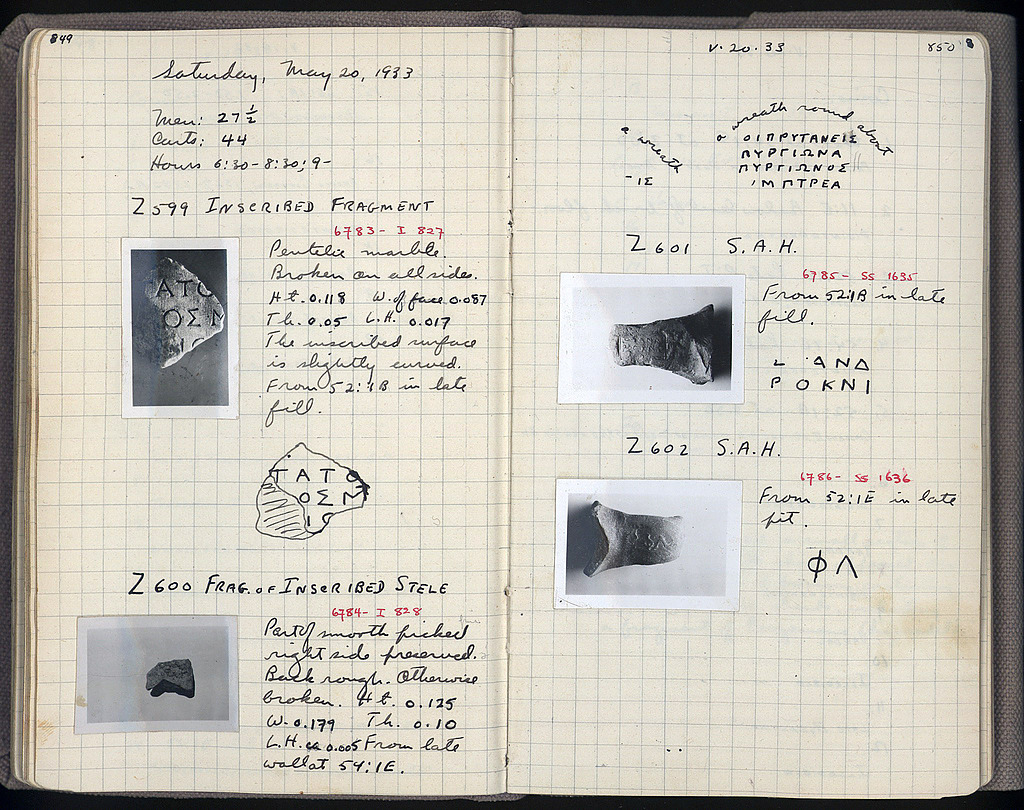 849
Saturday, May 20, 1933
Men: 27 ½
Carts: 44
Hours 6:30-8:30; 9-
Z 599 INSCRIBED FRAGMENT
6783- I 827
Pentelic marble.
Broken on all sides.
Ht. 0.118 W. of face 0.087
Th. 0.05 L.H. 0.017
The inscribed surface
is slightly curved.
From 52:1B in late
fill.
ΑΤΟ
ΟΣΜ
ΤΑΤΟ
ΟΣΜ
ΙΟ
Z 600 FRAG. OF INSCRIBED STELE
6784- I 828
Part of smooth picked
right side preserved.
Back rough. Otherwise
broken. Ht. 0.125
W. 0.179 Th. 0.10
L.H. ca 0.005 From late
wall at 54:1E.
V. 20. 33
850
a wreath
a wreath round about
ΟΙΠΡΥΤΑΝΕΙΣ
ΠΥΡΓΙΩΝΑ
ΠΥΡΓΙΩΝΟΣ
ΙΜΠΤΡΕΑ
-ΙΣ
Z 601 S.A.H.
6785- SS 1635
From 52:1B in late
fill.
ΑΝΔ
ΡΟΚΝΙ
Z 602 S.A.H.
6786- SS 1636
From 52:1E in late
pit.
ΦΛ